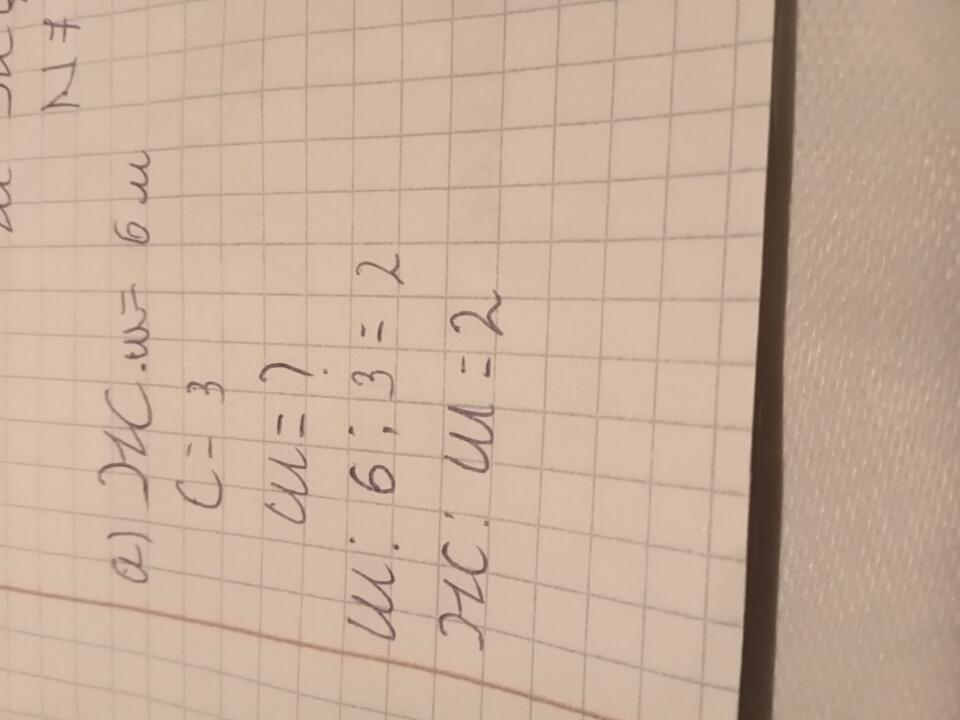 N 7
а) Ж.ш= 6 м
С = 3
Ш = ?
Ш: 6 : 3 = 2
Ж: Ш = 2